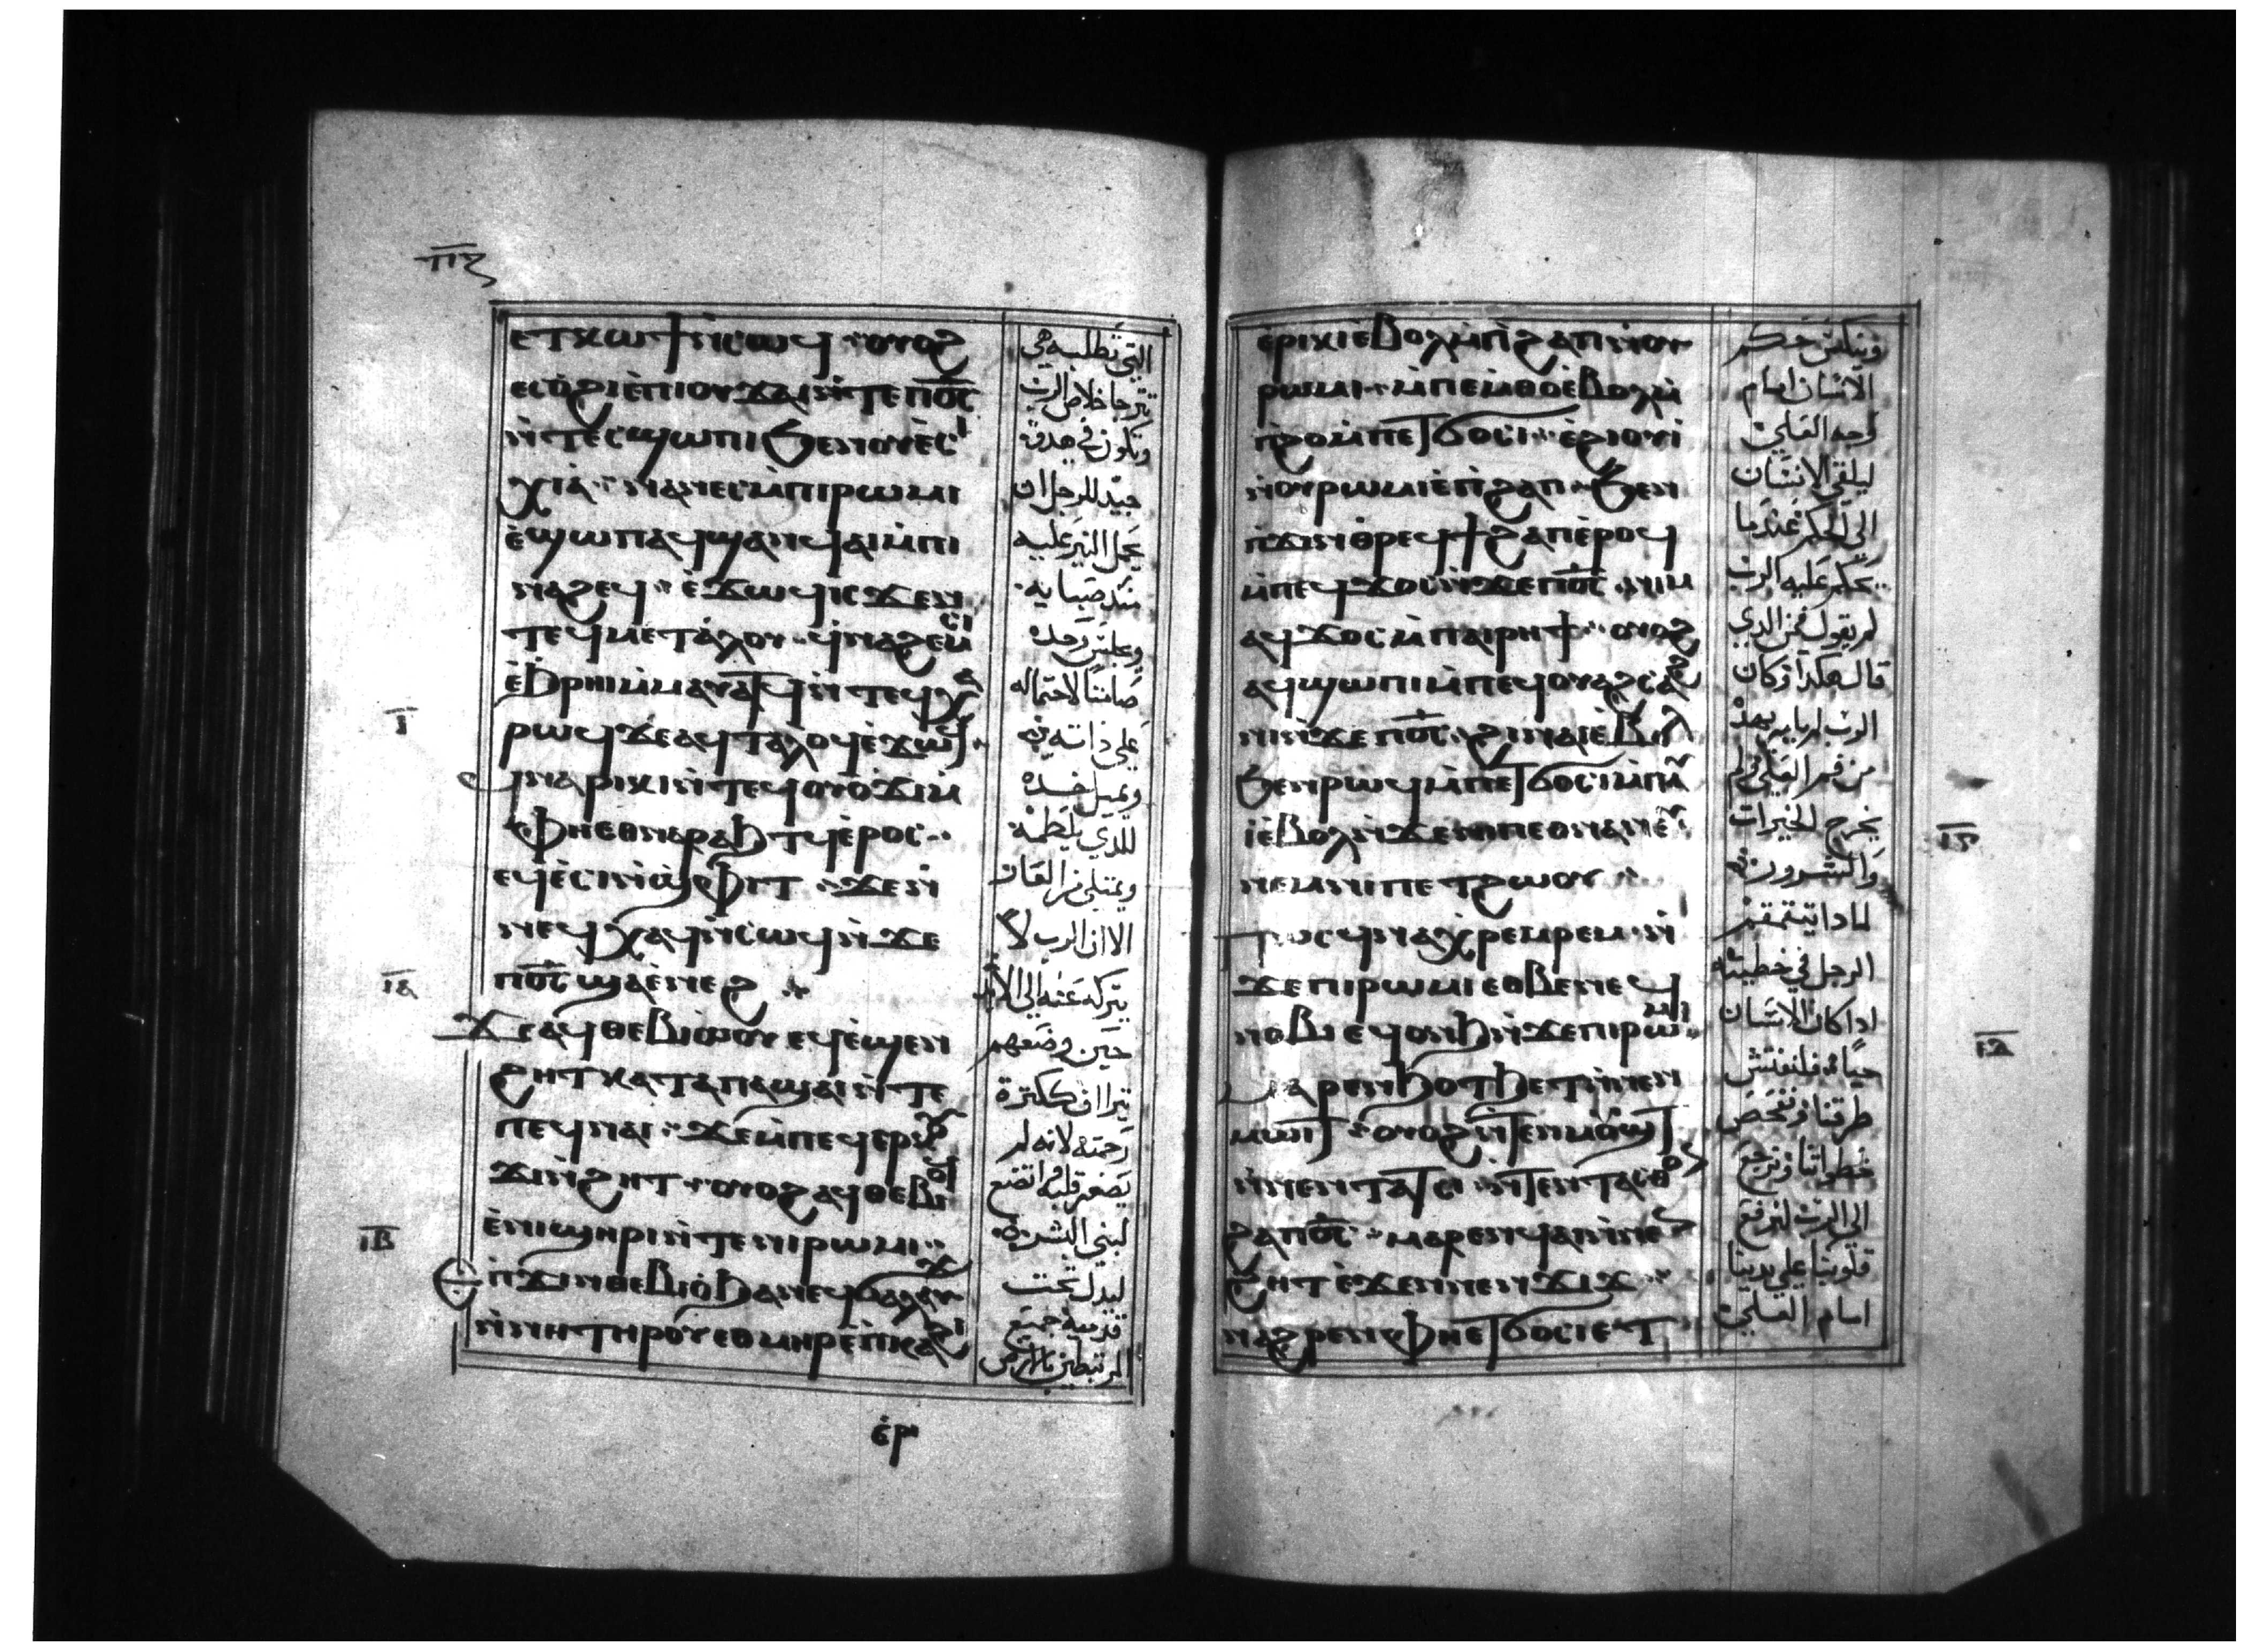 ⲡⲍ
ⲉⲧⲕⲱϯ ⲛ̀ⲥⲱϥ ⲟⲩⲟϩ
ⲉⲥⲟ̀ϩⲓ ⲉ̀ⲡⲓⲟⲩϫⲁⲓ ⲛ̀ⲧⲉ ⲡⲟ̅ⲥ̅
ⲛ̀ⲧⲉⲥϣⲱⲡⲓ ϧⲉⲛ ⲟⲩⲉ̀ⲥ
ⲭⲓⲁ̀ ⲛⲁⲛⲉⲥ ⲙ̀ⲡⲓⲣⲱⲙⲓ
ⲉ̀ϣⲱⲡ ⲁϥϣⲁⲛϥⲁⲓ ⲙ̀ⲡⲓ
ⲛⲁϩⲉϥ ⲉ̀ϫⲱϥ ⲓⲥϫⲉⲛ
ⲧⲉϥⲙⲉⲧⲁ̀ⲗⲟⲩ ϥⲛⲁϩⲉⲙⲥⲓ
ⲉ̀ϧⲣⲏⲓ ⲙⲙⲁⲩⲁⲧϥ ⲛ̀ⲧⲉϥⲭⲁ
ⲓ̅
ⲣⲱϥ ϫⲉ ⲁϥⲧⲁⲗⲟϥ ⲉϫⲱϥ
ϥⲛⲁⲣⲓⲕⲓ ⲛ̀ⲧⲉϥⲟⲩⲟ̀ϫⲓ ⲙ̀
ⲫⲏⲉⲑⲛⲁⲣⲁϧⲧϥ ⲉ̀ⲣⲟⲥ
ⲉϥⲉ̀ⲥⲓ ⲛ̀ϣⲫⲓⲧ ϫⲉⲛ
ⲛⲉϥⲭⲁϥ ⲛ̀ⲥⲱϥ ⲛ̀ϫⲉ
ⲓ̅ⲁ̅
ⲡⲟ̅ⲥ̅ ϣⲁⲉ̀ⲛⲉϩ
ϫⲉ ⲁϥⲑⲉⲃⲓⲱⲟⲩ ⲉϥⲉ̀ϣⲉⲛ
ϩⲏⲧ ⲕⲁⲧⲁ ⲡⲁϣⲁⲓ ⲛ̀ⲧⲉ
ⲡⲉϥⲛⲁⲓ ϫⲉ ⲙ̀ⲡⲉϥⲉⲣ
ϫⲓ ⲛ̀ϩⲏⲧ ⲟⲩⲟϩ ⲁϥⲑⲉⲃⲓⲟ
ⲓ̅ⲃ̅
ⲉ̀ⲛⲓϣⲏⲣⲓ ⲛ̀ⲧⲉ ⲛⲓⲣⲱⲙⲓ
ⲉ ⲡ̀ϫⲓⲛⲑⲉⲃⲓⲟ̀ ϧⲁ ⲛⲉϥϭⲁⲗⲁⲩϫ
ⲛ̀ⲛⲏ ⲧⲏⲣⲟⲩ ⲉⲑⲙⲏⲣ ⲉ̀ⲡⲕⲁϩⲓ
ⲉ̀ⲣⲓ
التي تطلبه في
تترجا خلاص الرب
وتكون في هدوة
جيد للرجل ان
يحمل النير عليه
منذ صباية
ويجلس وحده
صامتا لاحتماله
علي ذاته
ويميل خده
للذي يلطمه
ويمتلي من العار
الا ان الرب لا
يتركه عنه الي الابد
حين وضعهم
تيرااف ككثرة
رحمته لانه لم
يصغر قلبه اتضع
لبني البشر
ليذل تحت
قدميه جميع
المرتبطين بالارض
ⲉ̀ⲣⲓⲕⲓ ⲉ̀ⲃⲟⲗ ⲙ̀ⲡ̀ϩⲁⲡ ⲛ̀ⲟⲩ
ⲣⲱⲙⲓ ⲙ̀ⲡⲉⲙ̀ⲑⲟ ⲉ̀ⲃⲟⲗ ⲙ̀
ⲡ̀ϩⲟ ⲙ̀ⲡⲉⲧϭⲟⲥⲓ ⲉ̀ϩⲓⲟⲩⲓ
ⲛ̀ⲟⲩⲣⲱⲙⲓ ⲉ̀ⲡ̀ϩⲁⲡ ϧⲉⲛ
ⲡ̀ϫⲓⲛⲑⲣⲉϥϯϩⲁⲡ ⲉ̀ⲣⲟϥ
ⲙ̀ⲡⲉϥϫⲟⲥ ⲛ̀ϫⲉ ⲡⲟ̅ⲥ̅ ⲛⲓⲙ
ⲁϥϫⲟⲥ ⲙ̀ⲡⲁⲓⲣⲏϯ ⲟⲩⲟϩ
ⲁϥϣⲱⲡⲓ ⲙ̀ⲡⲉϥⲟⲩⲁϩⲥⲁϩ
ⲛⲓ ⲛ̀ϫⲉ ⲡⲟ̅ⲥ̅ ϩⲓⲛⲁⲓ ⲉ̀ⲃⲟⲗ
ϧⲉⲛ ⲣⲱϥ ⲙ̀ⲡⲉⲧϭⲟⲥⲓ ⲙ̀ⲡⲁⲩ
ⲓ̀ ⲉ̀ⲃⲟⲗ ⲛ̀ϫⲉ ⲛⲓⲡⲉⲑⲛⲁⲛⲉⲩ
ⲛⲉⲙ ⲛⲓⲡⲉⲧϩⲱⲟⲩ
ⲡⲱⲥ ϥⲛⲁⲭⲣⲉⲙⲣⲉⲙ ⲛ̀
ϫⲉ ⲡⲓⲣⲱⲙⲓ ⲉⲑⲃⲉ ⲛⲉϥ
ⲛⲟⲃⲓ ⲉϥⲟⲛϧ ⲛ̀ϫⲉ ⲡⲓⲣⲱⲙⲓ
ⲓ̅ⲇ̅
ⲙⲁⲣⲉⲛϧⲟⲧϧⲉⲧ ⲛ̀ⲛⲉⲛ
ⲙⲱⲓⲧ ⲟⲩⲟϩ ⲛ̀ⲧⲉⲛⲙⲟϣⲧ
ⲛ̀ⲛⲉⲛⲧⲁⲧⲥⲓ ⲛ̀ⲧⲉⲛⲧⲁⲥⲑⲟ
ϩⲁ ⲡⲟ̅ⲥ̅ ⲙⲁⲣⲉⲛϥⲁⲓ ⲛ̀ⲛⲉⲛ
ϩⲏⲧ ⲉ̀ϫⲉⲛ ⲛⲉⲛϫⲓϫ
ⲛⲁϩⲣⲉⲛ ⲫⲏⲉⲧϭⲟⲥⲓ ⲉⲧ
وينكس حكم
الانسان امام
وجه العلي
ليلقي الانسان
الي الحكم عندما
يحكم عليه الرب
لم يقول فمن الذي
قال هكذا وكان
الرب لم يامر بهذا
من فم العلي لم
يخرج الخيرات
والشرور
لماذا يتقمقم
الرجل في خطيته
اذا كان الانسان
حياه فلنفتش
طرقنا ونفحص
خطواتنا ونرجع
الي الرب لنرفع
قلوبنا علي يدينا
امام العلي